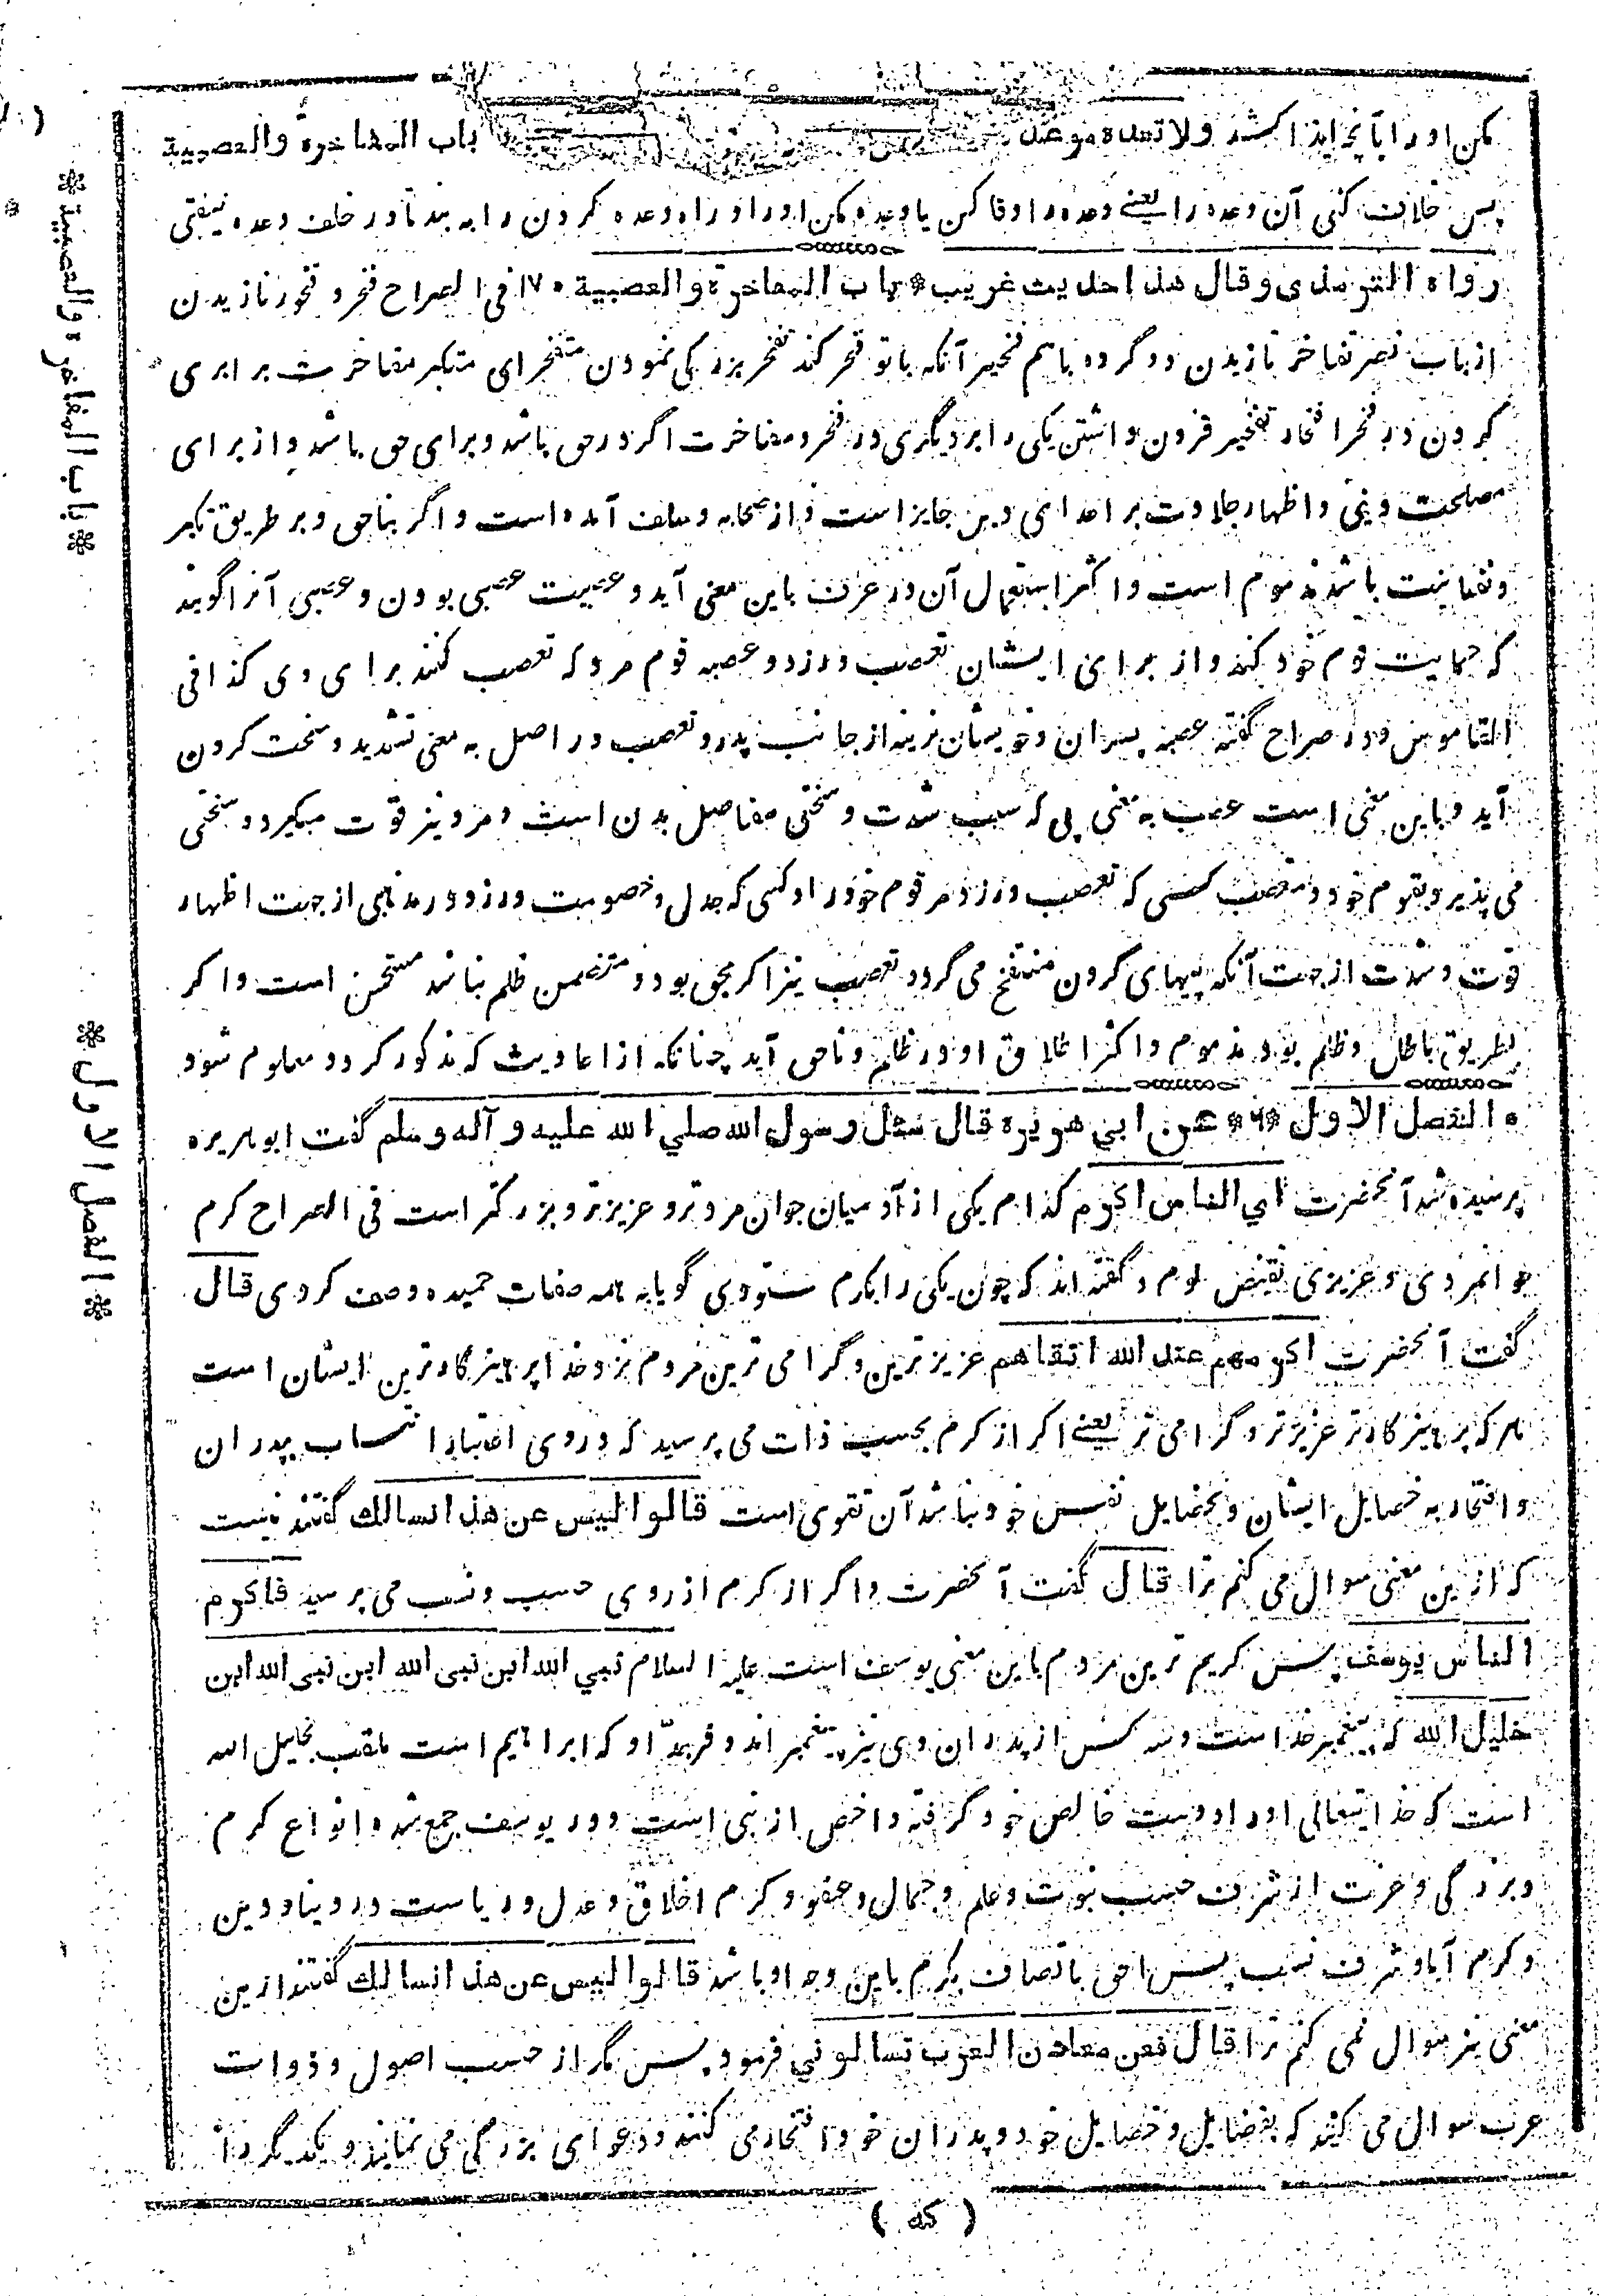 مکن او را بآنچه ایذا کشد ولا تعده موعدا باب المفاخرة والعصبية
پس خلاف کنی آن وعده را یعنے وعده را وفا کن یا وعده مکن او را و راه وعده کردن را به بند تا در خلف وعده نیفتی
رواه الترمذي وقال هذا حديث غريب * باب المفاخرة والعصبية ۱۷۰ فی الصراح فخر و فخور نازیدن
از باب نصر تفاخر نازیدن دو گروه باهم فخیر آنکه با تو فخر کند تفخر بزرگی نمودن متفخر ای متکبر مفاخرت برابری
کردن در فخر افتخار تفخیر فزون داشتن یکی را بر دیگری در فخر و مفاخرت اگر در حق باشد و برای حق باشد و از برای
مصلحت دینی و اظهار جلادت بر اعدای دین جایز است و از صحابه و سلف آمده است و اگر بناحق و بر طریق تکبر
و نفسانیت باشد مذموم است و اکثر استعمال آن در عرف باین معنی آید و عصبیت عصبی بودن و عصبی آنرا گویند
که حمایت قوم خود کند و از برای ایشان تعصب ورزد و عصبه قوم مرد که تعصب کنند برای وی کذا فی
القاموس و در صراح گفته عصبه پسران و خویشان نرینه از جانب پدر و تعصب در اصل به معنی تشدید و سخت کردن
آید و باین معنی است عصب به معنی پی که سبب شدت و سختی مفاصل بدن است و مرد نیز قوت میگیرد و سختی
می پذیر و بقوم خود و متعصب کسی که تعصب ورزد مر قوم خود را و کسی که جدل و خصومت ورزد و در مذهبی از جهت اظهار
قوت و شدت از جهت آنکه پیهای گردن منتفخ می گردد تعصب نیز اگر بحق بود و متضمن ظلم نباشد مستحسن است و اگر
بطریق باطل و ظلم بود مذموم و اکثر اطلاق او در ظلم و ناحق آید چنانکه از احادیث که مذکور گردد معلوم شود
• الفصل الاول *۶* عن ابي هريرة قال سئل رسول الله صلي الله عليه و آله وسلم گفت ابو هریره
پرسیده شد آنحضرت اي الناس اكرم کدام یکی از آدمیان جوان مرد تر و عزیزتر و بزرگتر است فی الصراح کرم
جوانمردی و عزیزی نقیض لوم و گفته اند که چون یکی را بکرم ستودی گویا به همه صفات حمیده وصف کردی قال
گفت آنحضرت اكرمهم عند الله اتقاهم عزیزترین و گرامی ترین مردم نزد خدا پرهیزگارترین ایشان است
هر که پرهیزگارتر عزیزتر و گرامی تر یعنے اگر از کرم بحسب ذات می پرسید که در وی اعتبار انتساب پدران
و افتخار به خصایل ایشان و بخصایل نفس خود نباشد آن تقوی است قالوا ليس عن هذا نسالك گفتند نیست
که ازین معنی سوال می کنم ترا قال گفت آنحضرت و اگر از کرم از روی حسب و نسب می پرسید فاكرم
الناس يوسف پس کریم ترین مردم باین معنی یوسف است علیه السلام نبي الله ابن نبى الله ابن نبى الله ابن
خليل الله که پیغمبر خدا است و سه کس از پدران وی نیز پیغمبر اند و فربد او که ابراهیم است ملقب بخلیل الله
است که خدایتعالی او را دوست خالص خود گرفته و اخص از نبی است و در یوسف جمع شده انواع کرم
و بزرگی و عزت از شرف حسب نبوت و علم و جمال و عفو و کرم اخلاق و عدل و ریاست در دنیا و دین
و کرم آبا و شرف نسب پس احق باتصاف بکرم باین وجه او باشد قالوا ليس عن هذا نسالك گفتند ازین
معنی نیز سوال نمی کنم ترا قال فعن معادن العرب تسالوني فرمود پس مگر از حسب اصول و ذوات
عرب سوال می کنید که بفضایل و خصایل خود و پدران خود افتخار می کنند و دعوای بزرگی می نمایند و یکدیگر را
( که )
* باب المفاخرة والعصبية *
* الفصل الاول *